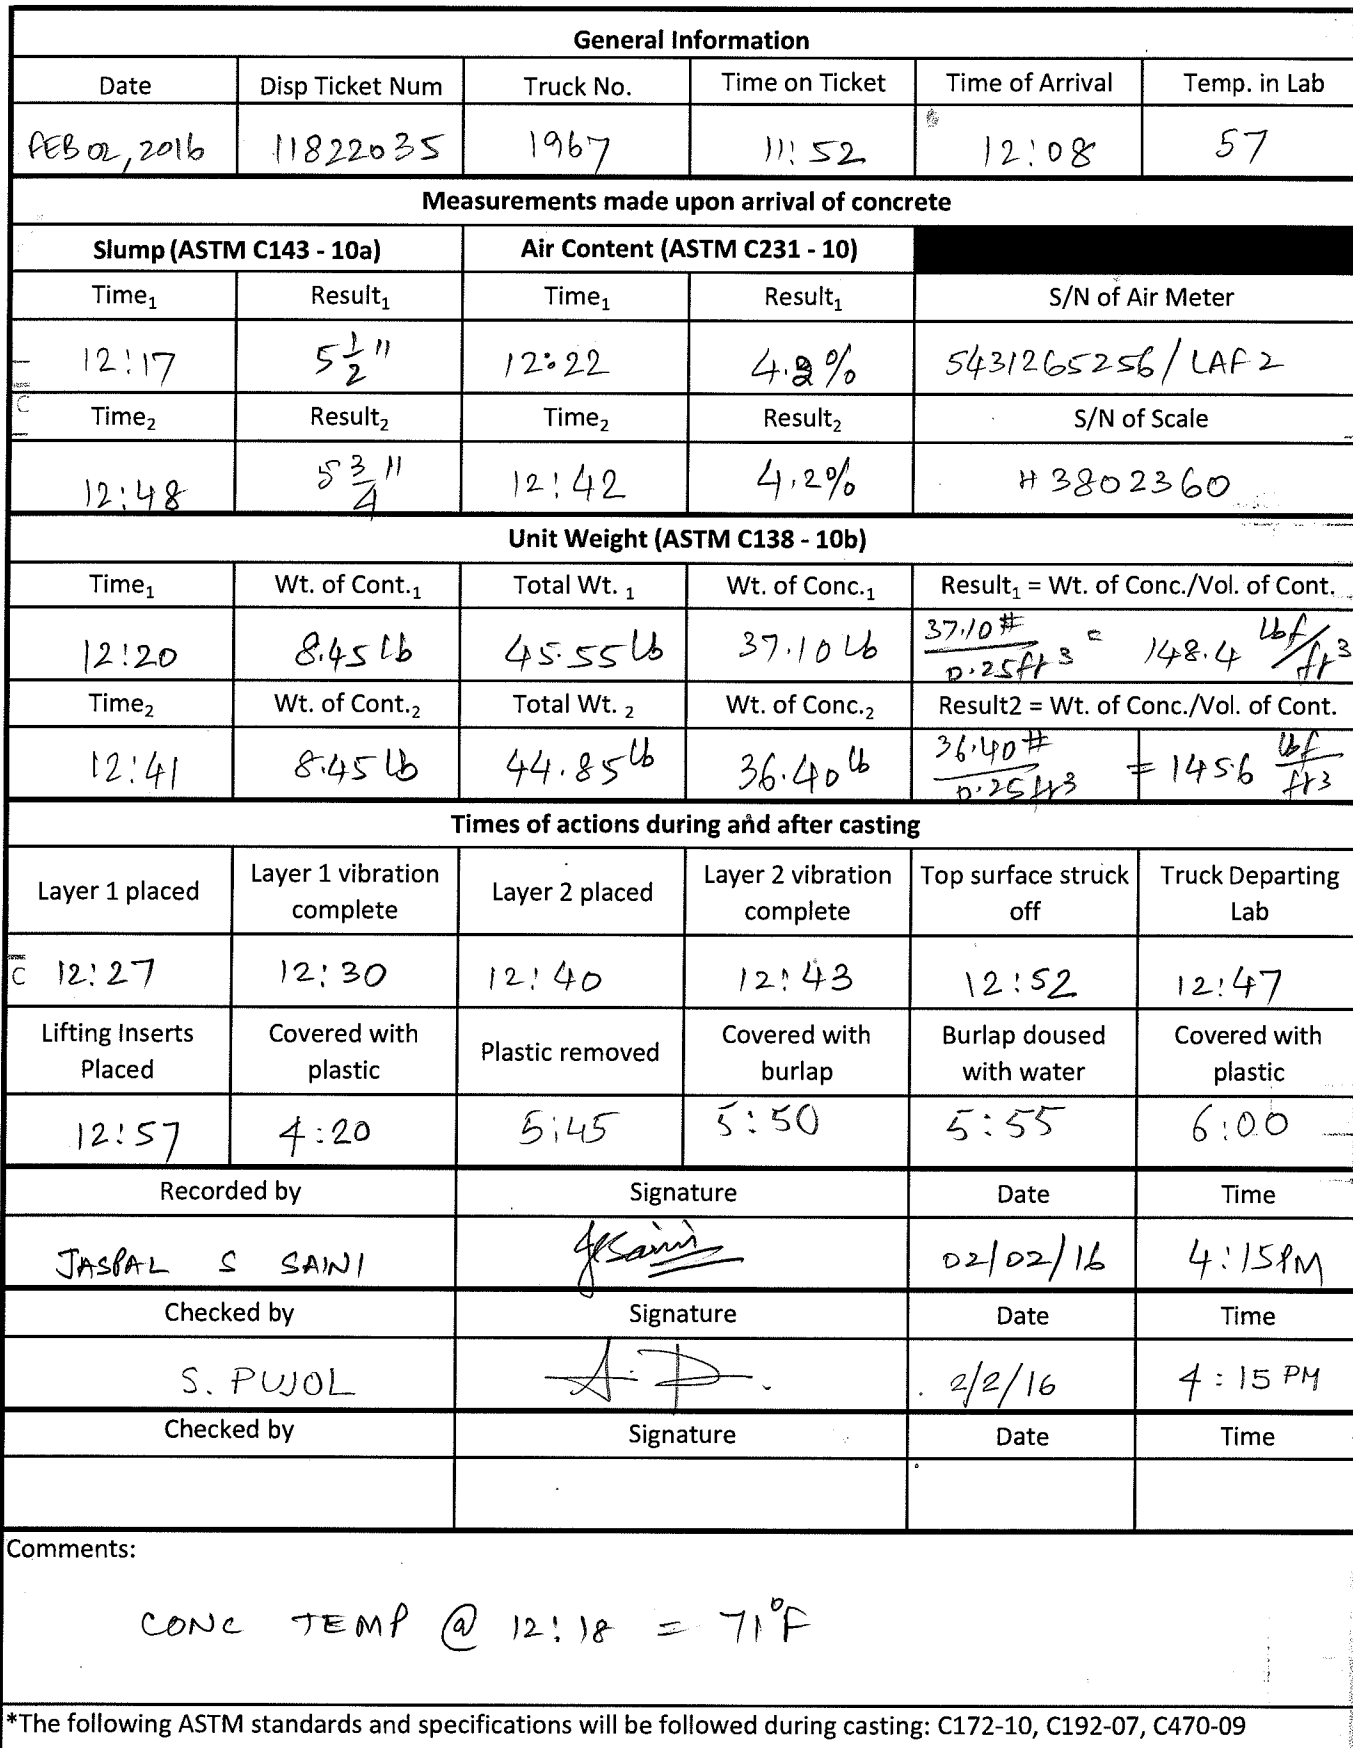 General Information
Date Disp Ticket Num Truck No. Time on Ticket Time of Arrival Temp. in Lab
FEB 02, 2016 11822035 1967 11:52 12:08 57
Measurements made upon arrival of concrete
Slump (ASTM C143 - 10a) Air Content (ASTM C231 - 10)
Time₁ Result₁ Time₁ Result₁ S/N of Air Meter
12:17 5 1/2" 12:22 5431265256/LAF2
Time₂ Result₂ Time₂ Result₂ S/N of Scale
12:48 5 3/4" 12:42 4.2% #3802360
Unit Weight (ASTM C138 - 10b)
Time₁ Wt. of Cont.₁ Total Wt. ₁ Wt. of Conc.₁ Result₁ = Wt. of Conc./Vol. of Cont.
12:20 8.45 lb 45.55 lb 37.10 lb 37.10#/0.25ft3 = 148.4 lbf/ft3
Time₂ Wt. of Cont.₂ Total Wt. ₂ Wt. of Conc.₂ Result2 = Wt. of Conc./Vol. of Cont.
12:41 8.45 lb 44.85 lb 36.40 lb 36.40#/0.25ft3 = 145.6 lbf/ft3
Times of actions during and after casting
Layer 1 placed Layer 1 vibration complete Layer 2 placed Layer 2 vibration complete Top surface struck off Truck Departing Lab
12:27 12:30 12:40 12:43 12:52 12:47
Lifting Inserts Placed Covered with plastic Plastic removed Covered with burlap Burlap doused with water Covered with plastic
12:57 4:20 5:45 5:50 5:55 6:00
Recorded by Signature Date Time
JASPAL S SAINI JSSaini 02/02/16 4:15PM
Checked by Signature Date Time
S. PUJOL 2/2/16 4:15 PM
Checked by Signature Date Time
Comments:
CONC TEMP @ 12:18 = 71°F
*The following ASTM standards and specifications will be followed during casting: C172-10, C192-07, C470-09